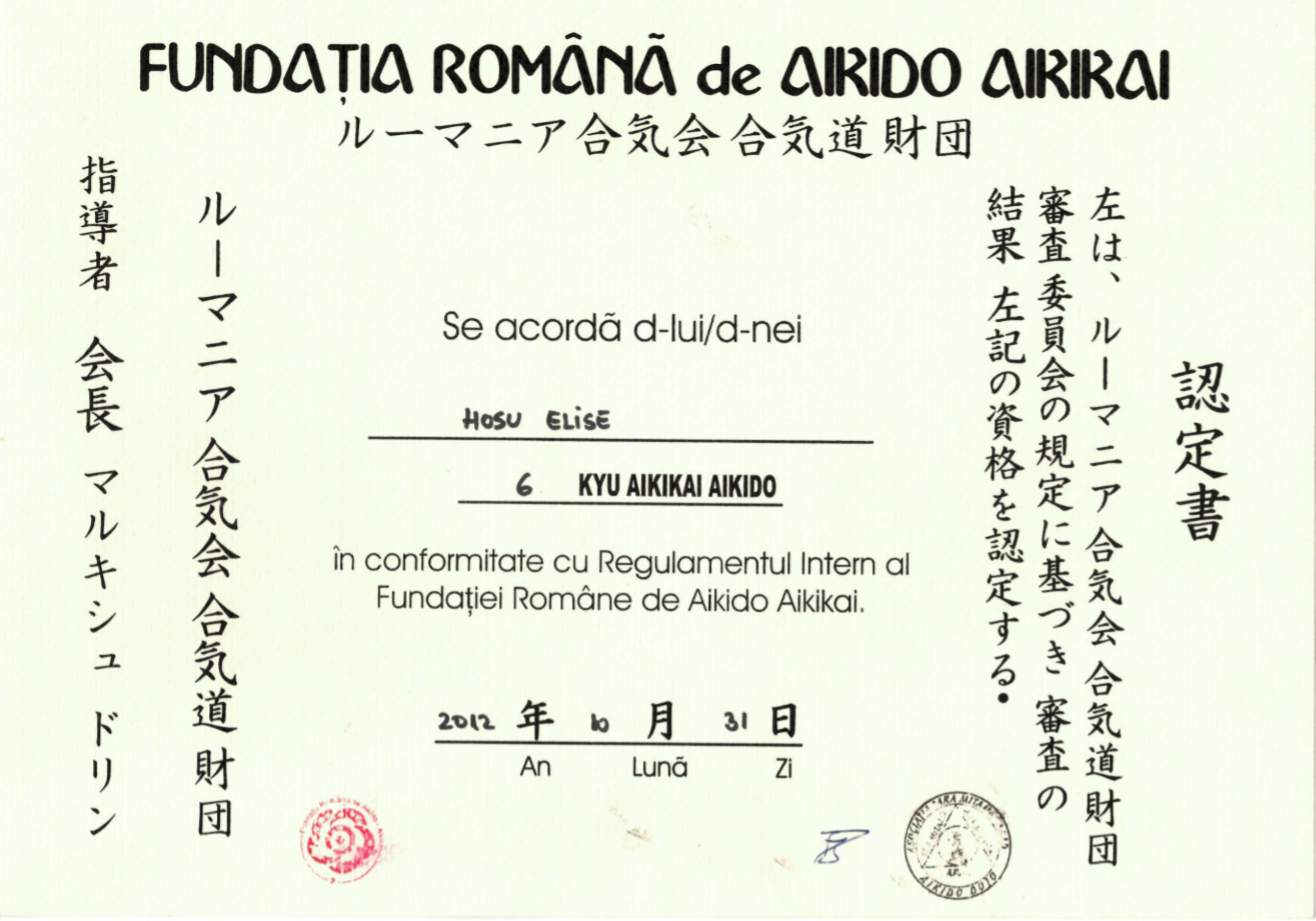 FUNDAȚIA ROMÂNÃ de AIKIDO AIKIKAI
ルーマニア合気会 合気道財団
認定書
左は、ルーマニア合気会 合気道財団
審査委員会の規定に基づき 審査の
結果 左記の資格を認定する・
Se acordã d-lui/d-nei
HOSU ELISE
6 KYU AIKIKAI AIKIDO
în conformitate cu Regulamentul Intern al
Fundației Române de Aikido Aikikai.
2012 年 10 月 31 日
An Lunã Zi
ルーマニア合気会 合気道財団
指導者 会長 マルキシュ ドリン
AIKIDO DOJO